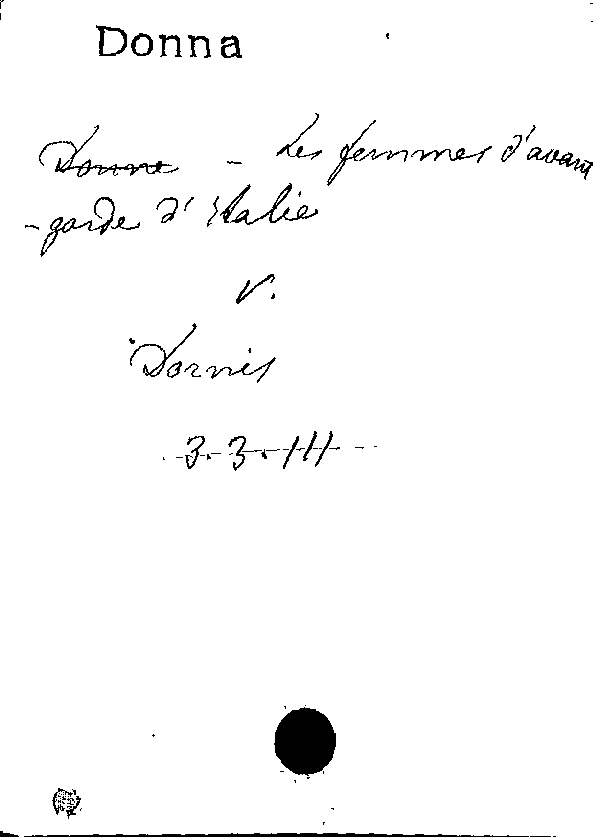 Donna
Donne - Les femmes d'avant
-garde d'Italie
V.
Dornis
3.3.111